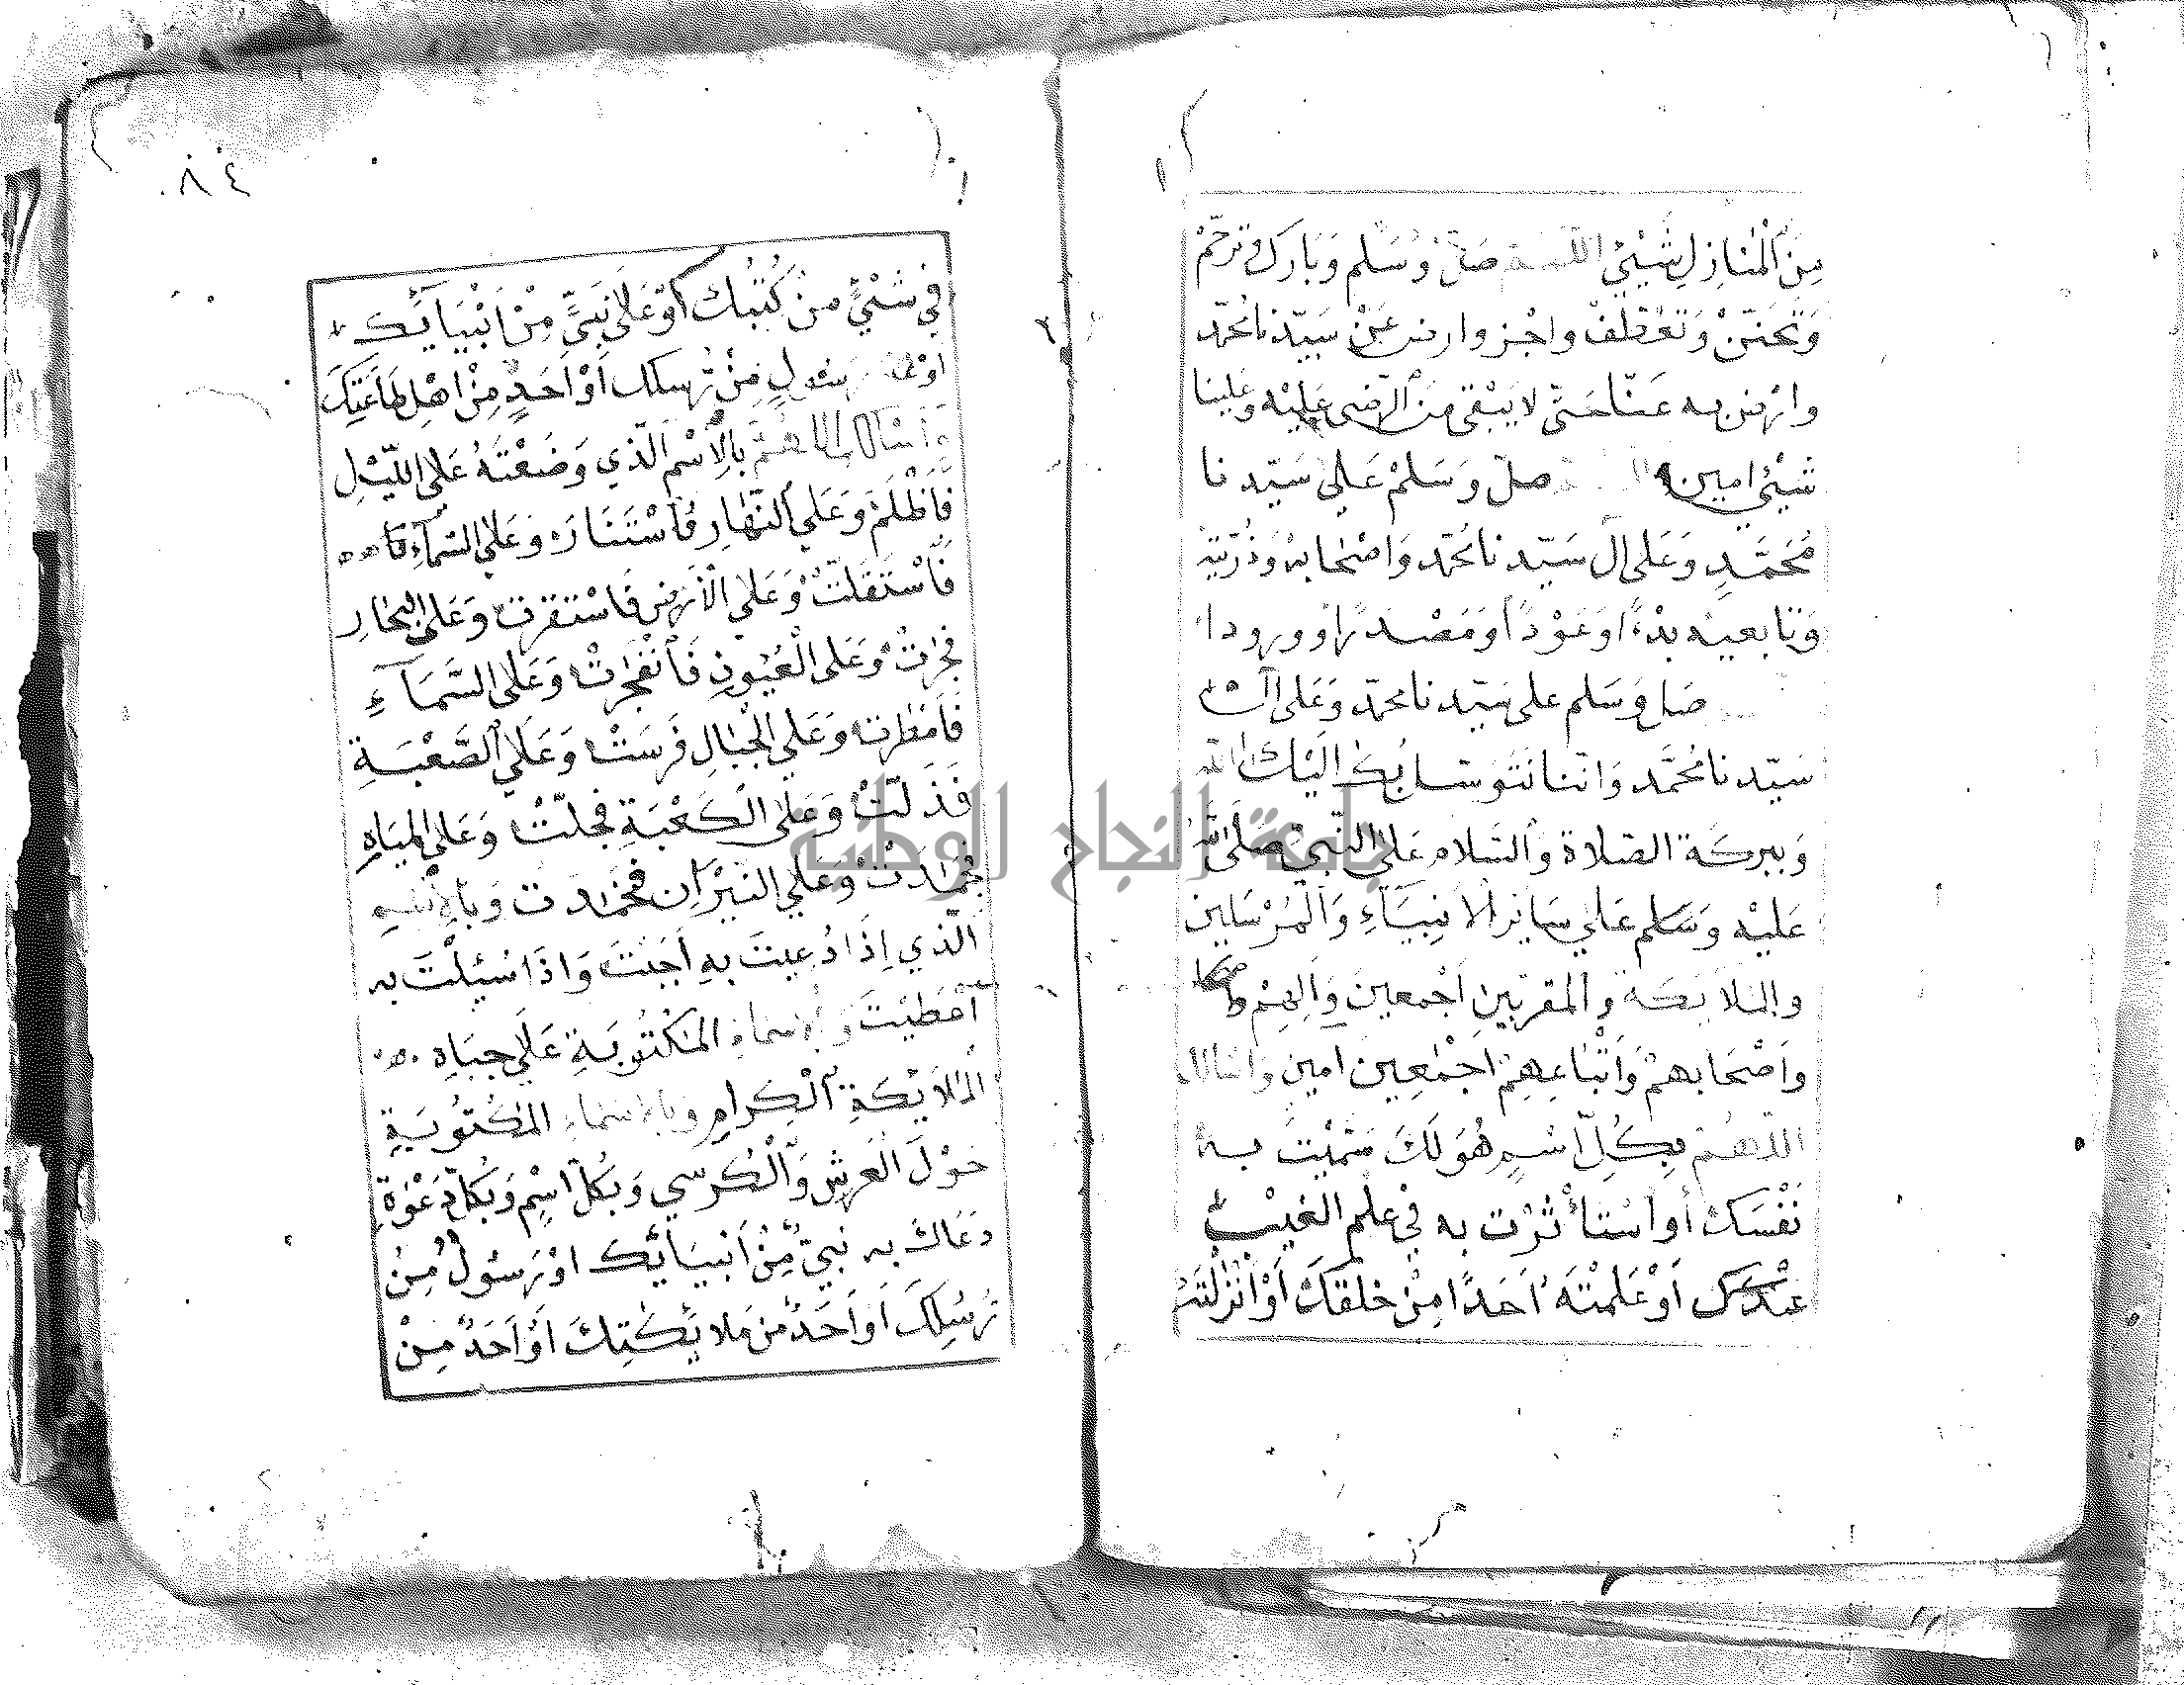 مِنَ الْمَنازِلِ شَيْئٍ اللّٰهم صَلِّ وَسَلِّم وَبَارِك وترحَّمْ
وَتَحَنَّنْ وَتَعَطَّفْ واجْز وارض عَنْ سَيّدنا محمّد
وارض به عَنّا حَتّى لا يَبْقى مِنَ الرّضى عَلَيْه وعلينا
شَيْئٍ امين صلّ وَسَلمْ عَلى سَيّدنا
مُحَمَّدٍ وَعَلى ال سَيّدنا محمّد وَاصْحابه وَذُرّيته
وَتابعيه بدْءًا وَعَوْدًا وَمَصْدَرًا وورودا
صَل وَسَلم على سَيّدنا محمّد وَعَلى ال
سَيّدنا مُحَمَّد وَاننا نَتَوَسّل بِكَ اليْكَ
وَببركَة الصّلاة والسَّلام عَلى النَّبيّ صَلى الله
عَليْه وَسَلم عَلى سَاير الانبيَآءِ وَالمرْسَلين
والملايكة والمقربين اَجْمعين وَالِهِمْ
وَاَصْحَابهمْ وَاَتْباعِهِمْ اجْمَعين امين وَاسْالك
اللّهُمّ بِكُلّ اسْمٍ هُوَ لَكَ سَمّيْتَ بهِ
نَفْسَكَ أو اسْتأثرْت به في علم الغَيْب
عنْدكَ اَوْ عَلمْتَهُ اَحَدًا مِنْ خلقكَ اَوْ انْزَلْتَهُ
٠٨٤
في شَيْئٍ منْ كُتُبك اَوْ عَلى نَبيٍّ مِنْ اَنْبيَآيكَ
اوْ على رسُولٍ مِنْ رُسلك اَوْ اَحَدٍ مِنْ اهْل طاعَتِكَ
وَاَسْالك اللهُمّ بالْاِسْم الّذي وَضَعْتَهُ عَلى اللّيْلِ
فَاَظْلَمَ وَعَلي النّهَار فَاسْتَنَارَ وَعَلى السّمَآء فَا
فَاسْتَقَلّتْ وَعَلي الْاَرْض فاسْتقرت وَعَلى البحار
فجرتْ وَعَلى الْعُيُون فَانْفجَرَتْ وَعَلى السَّمَآءِ
فَاَمَطرت وَعَلي الْجبَالِ فَرَسَتْ وَعَلَي الصَّعْبَةِ
فَذَلّتْ وَعَلى الكَعْبَةِ فجلّتْ وَعَلي المِيَاهِ
فجمَدَتْ وَعَلي النيْرَان فخمَدت وَبالاِسْمِ
الّذي اِذَا دُعِيتَ بهِ اَجَبْتَ وَاذَا سُئِلْتَ به
اَعْطَيْتَ وَبالاسْماء المَكْتُوبَةِ عَلَي جبَاهِ
المَلايكَةِ الْكِرام وَبالاسْماءِ المَكْتُوبَةِ
حَوْلَ العَرْش وَالْكُرْسي وَبكلّ اسْم وَبكُلّ دَعْوَةٍ
دَعَاكَ به نبيّ مّنْ اَنبيَآيكَ اوْ رَسُولٌ مِنْ
رُسُلِكَ اَوْ اَحَدٌ منْ مَلايكَتِكَ اَوْ اَحَدٌ مِنْ
جامعة النجاح الوطنية